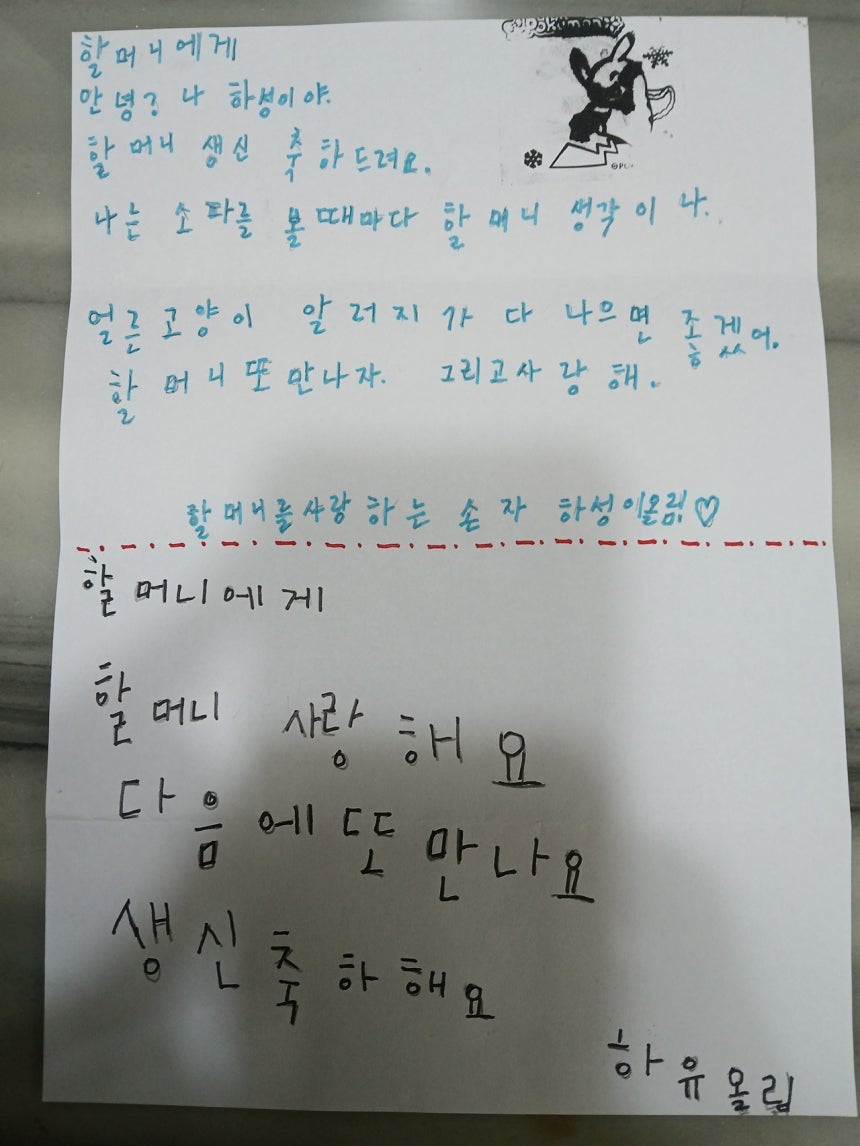 할머니에게
안녕? 나 하성이야.
할머니 생신 축하드려요.
나는 소파를 볼때마다 할머니 생각이 나.
얼른고양이 알러지가 다 나으면 좋겠어.
할머니또만나자. 그리고사랑해.
할머니를사랑하는 손자 하성이올림♡
할머니에게
할머니 사랑해요
다음에또만나요
생신축하해요
하유올림